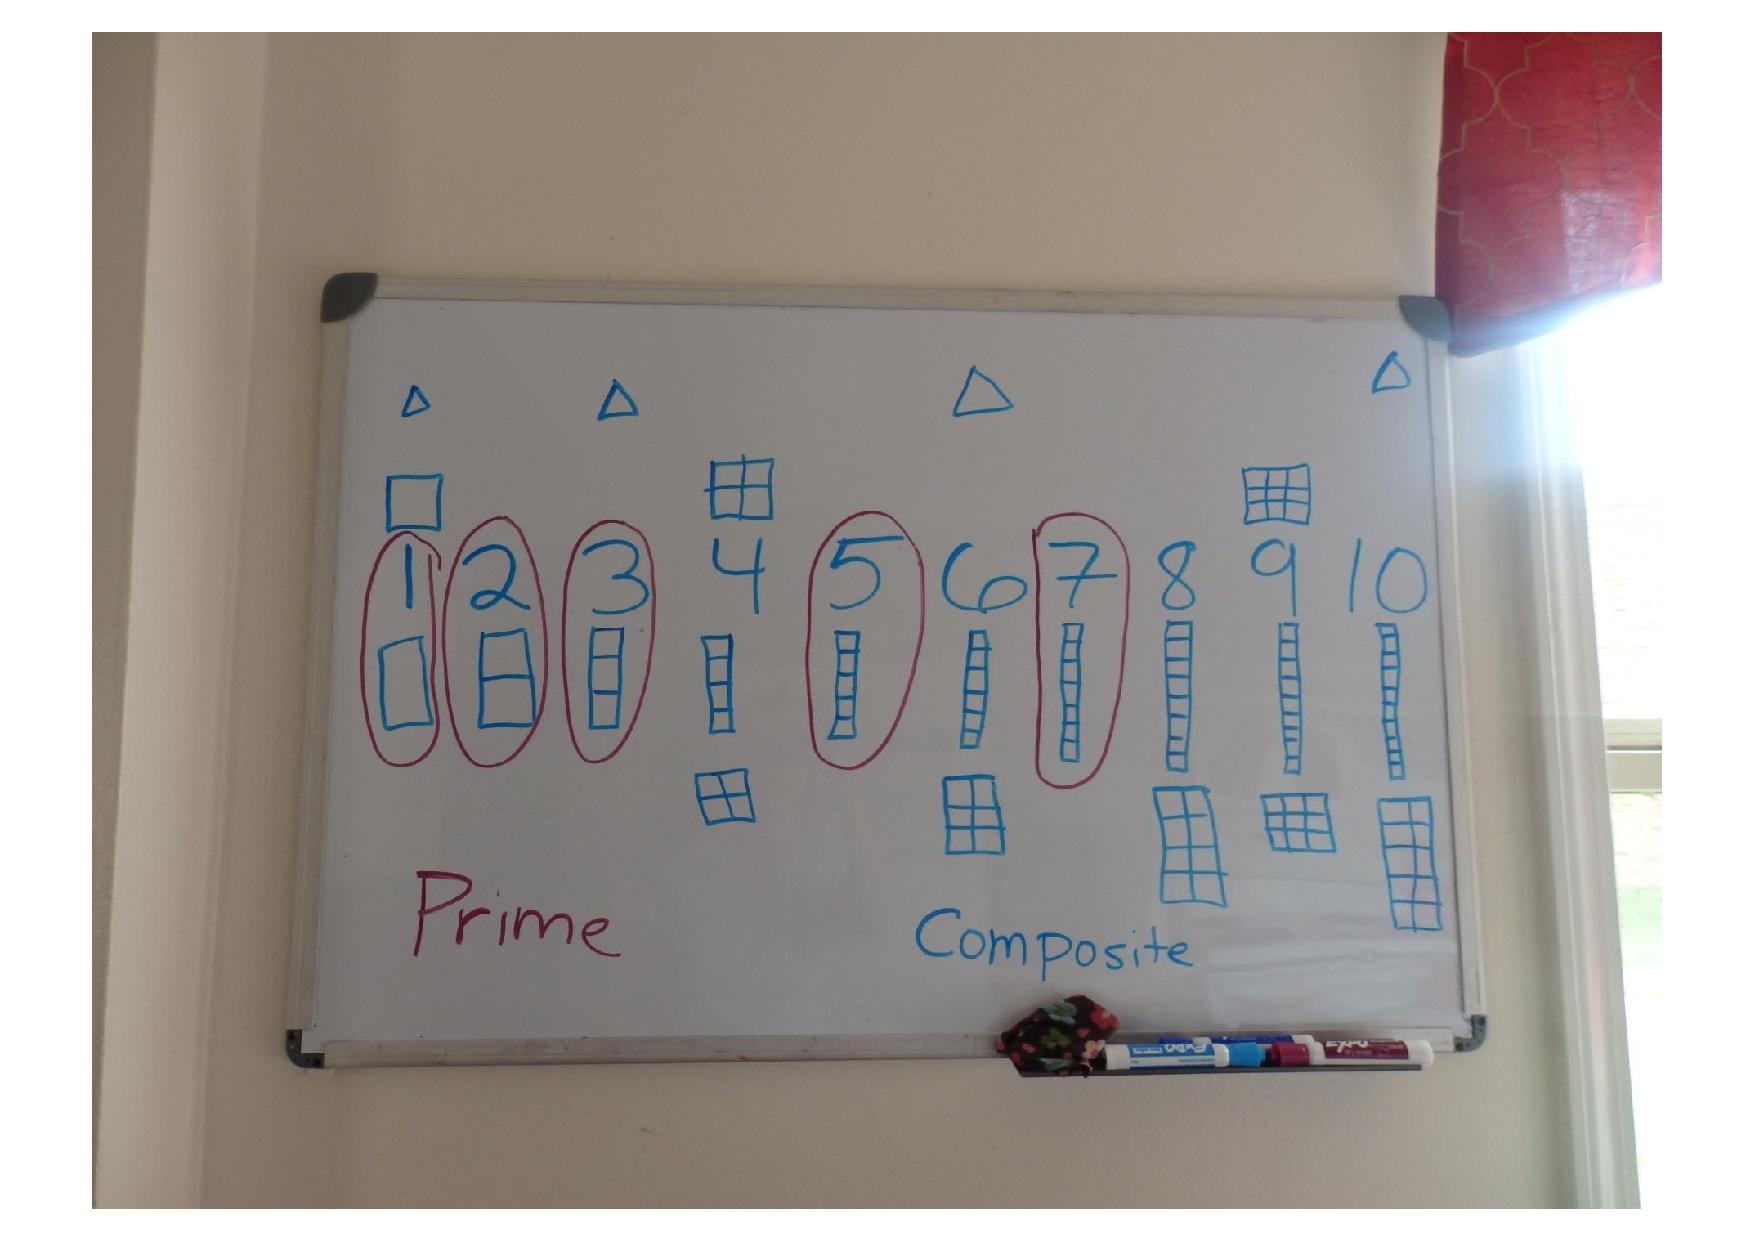 1 2 3 4 5 6 7 8 9 10
Prime
Composite
EXPO